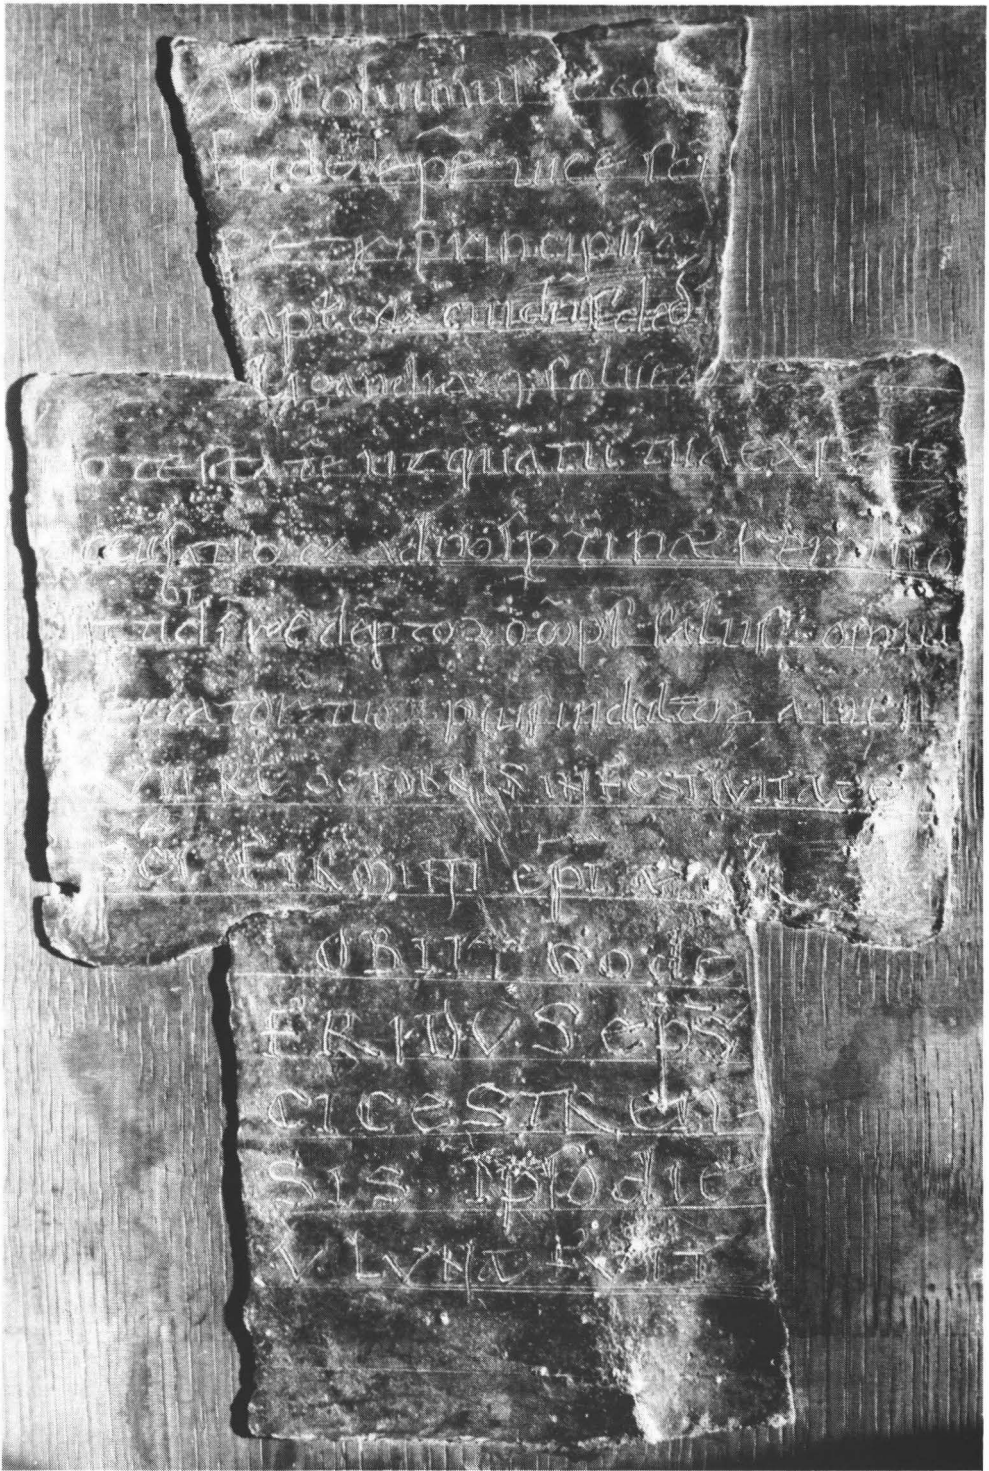 Absoluimus te god
fride epe uice sci
pe&ri principis
aptor cui dns ded
ligandi atq; soluendi
potestatē ut quātū tua expetit
accusatio & ad nos ptin& remissio
sit tibi ds redeptor omps salus omniu
peccator tuor pius indultor amen
VII KL OCTOBRIS IN FESTIVITATE
SCI FIRMINI EPI &
OBIIT GODE
FRIDVS EPS
CICESTREN
SIS. IPSO DIE
V LVNA FVIT